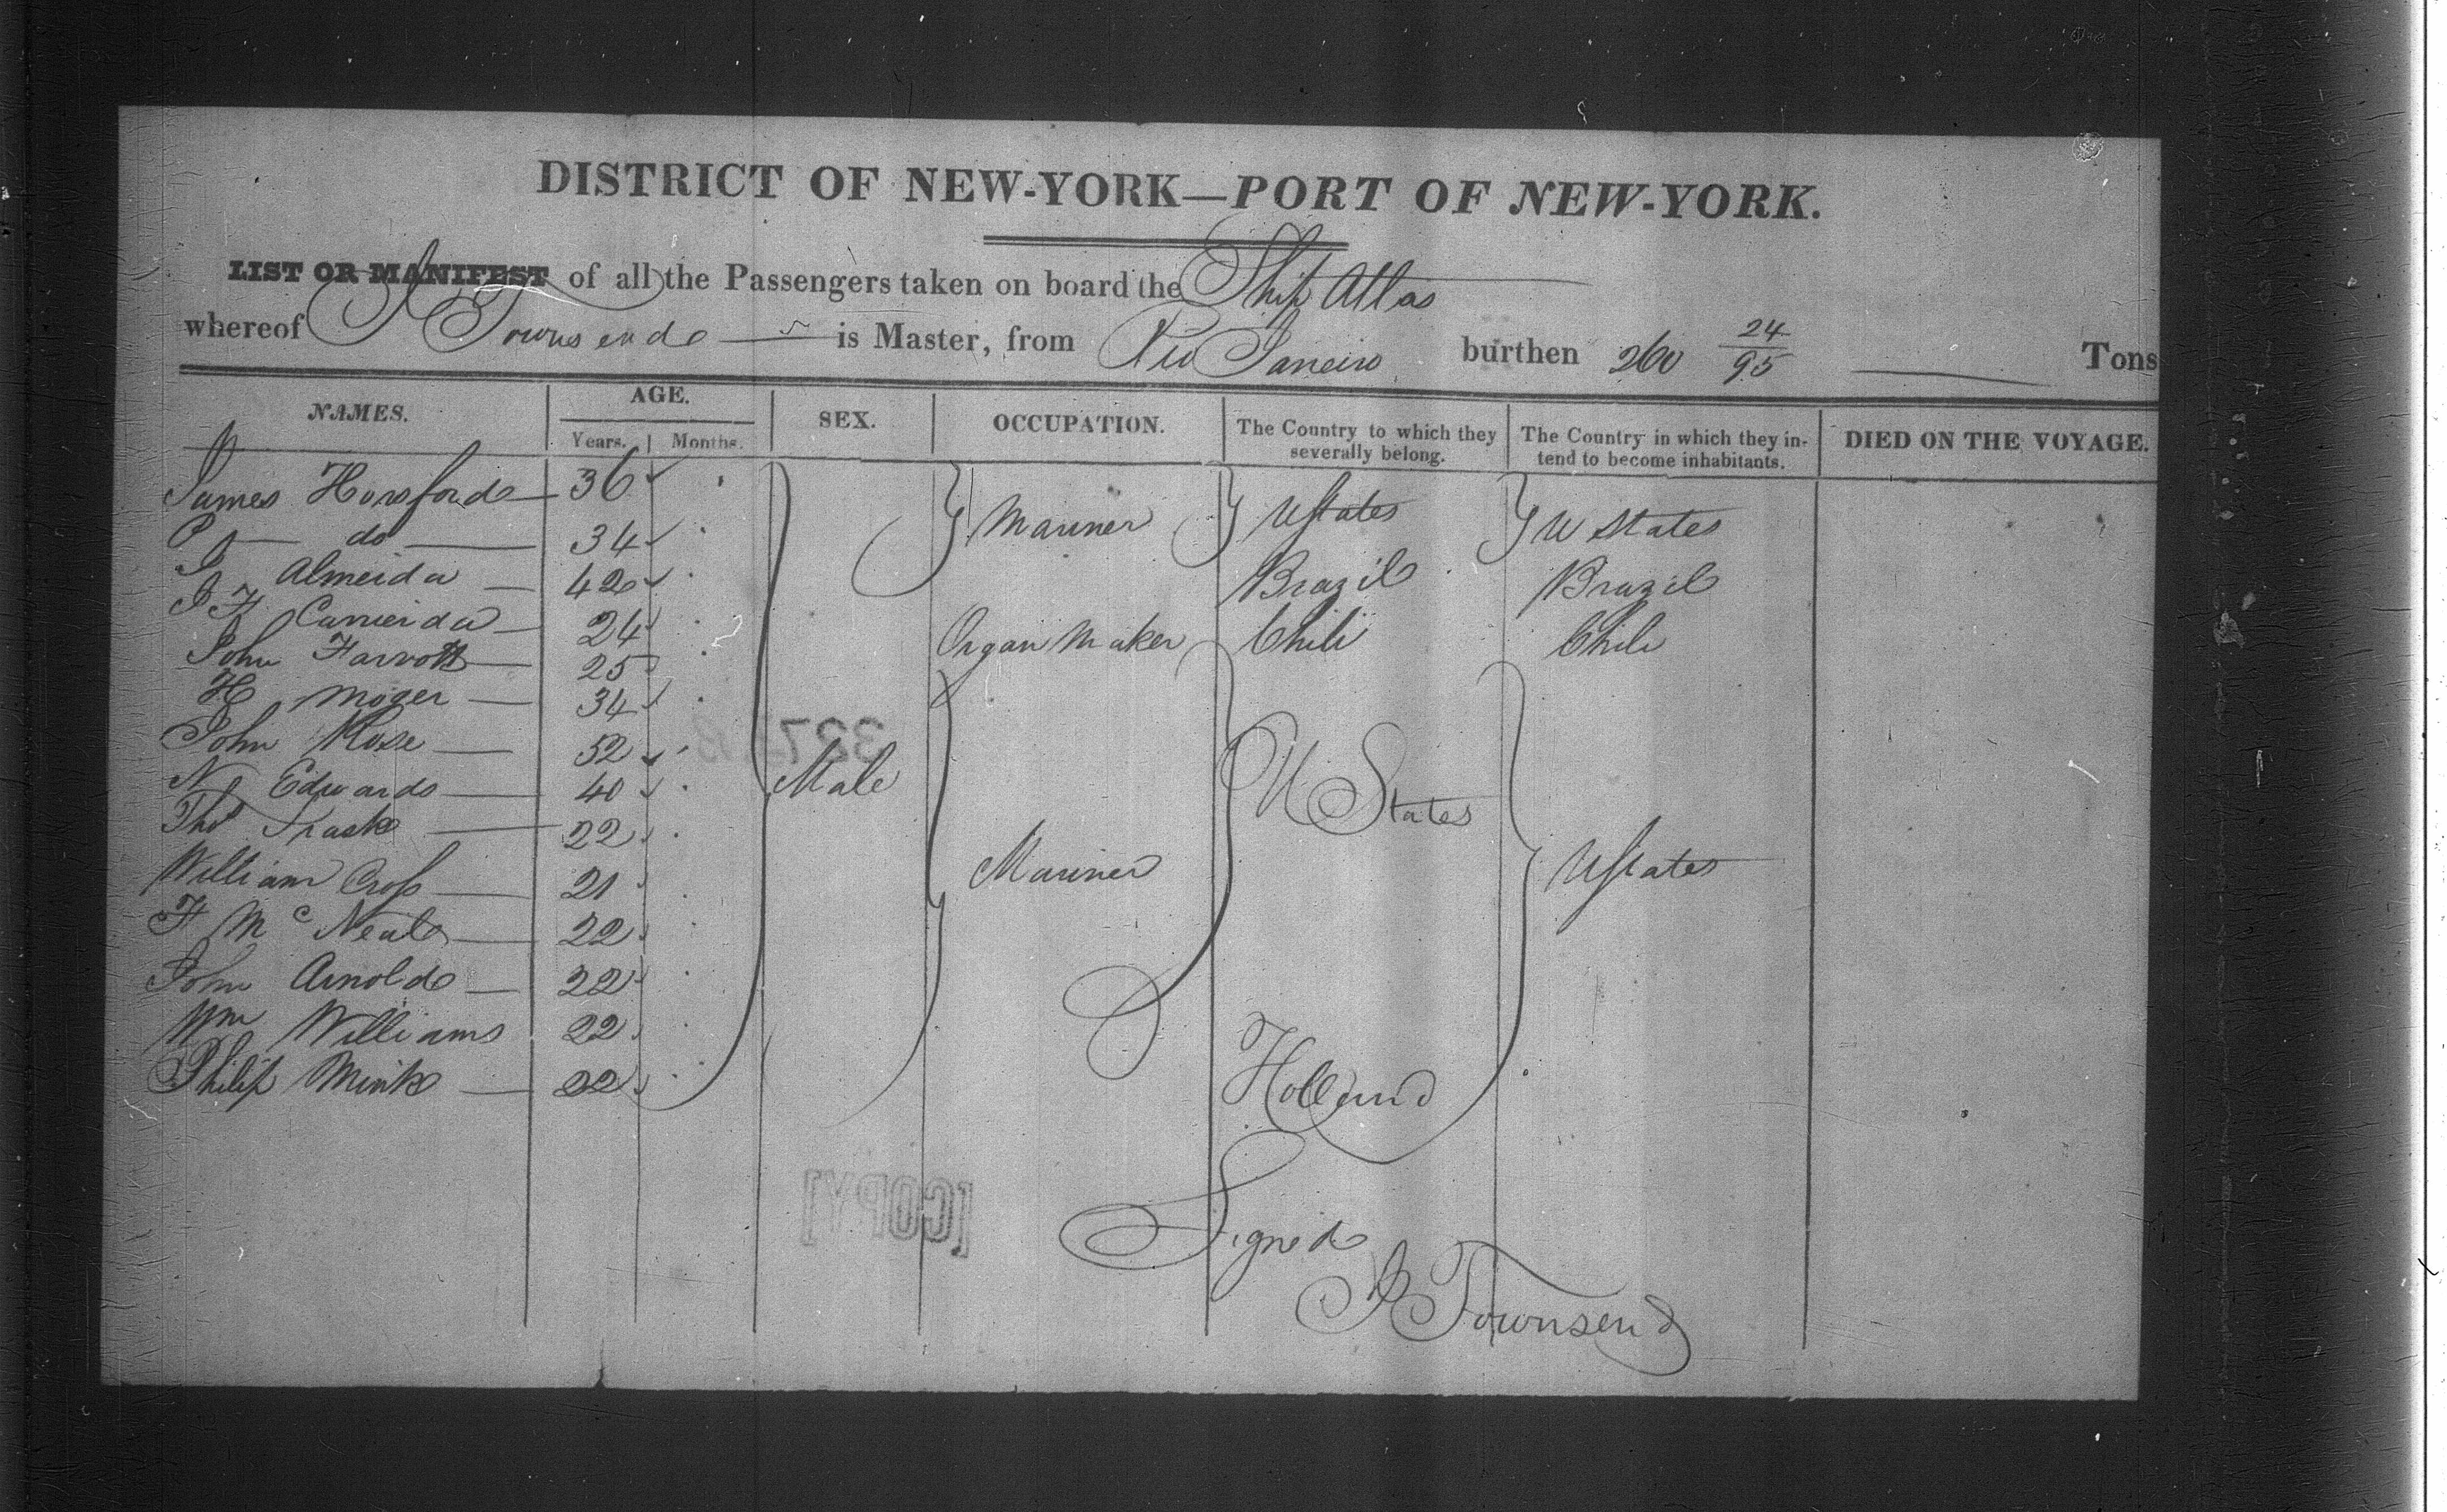 DISTRICT OF NEW-YORK—PORT OF NEW-YORK.
LIST OR MANIFEST of all the Passengers taken on board the Ship Atlas
whereof Townsend is Master, from Rio Janeiro burthen 260 24/95 Tons
NAMES. AGE. SEX. OCCUPATION. The Country to which they severally belong. The Country in which they intend to become inhabitants. DIED ON THE VOYAGE.
Years. Months.
James Horsford 36 Mariner U States U States
do 34
Almeida 42 Brazil Brazil
24 Organ Maker Chili Chili
John 25
H Moger 34
John Rose 52
N Edwards 40 Male U States
Thos Trask 22
William Cross 21 Mariner U States
F McNeal 22
John Arnold 22
Wm Williams 22
Philip Mink 22 Holland
[COPY]
Signed
Townsend